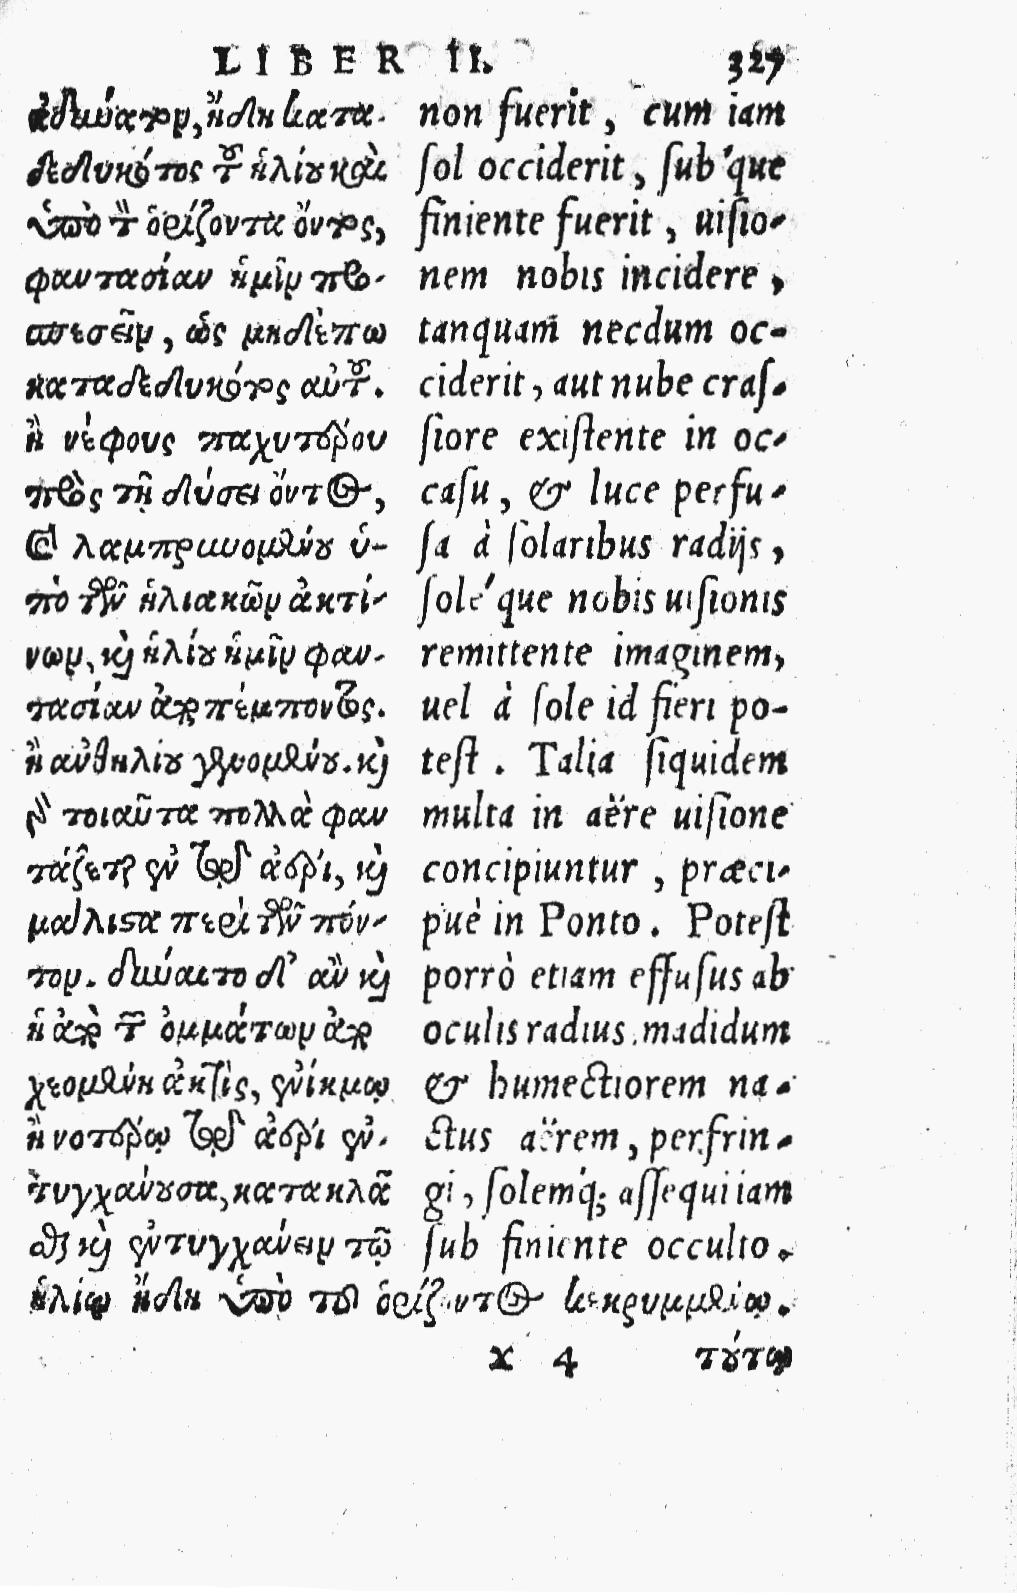 LIBER II. 327
ἀδιωύατον, ἤδη κατα-
δεδυκότος τοῦ ἡλίου καὶ
ὑπὸ τὸν ὁρίζοντα ὄντος,
φαντασίαν ἡμῖν προ-
σπεσεῖν, ὡς μηδέπω
καταδεδυκότος αὐτοῦ.
ἢ νέφους παχυτέρου
πρὸς τῇ δύσει ὄντος,
καὶ λαμπρυνομένου ὑ-
πὸ τῶν ἡλιακῶν ἀκτί-
νων, καὶ ἡλίου ἡμῖν φαν-
τασίαν ἀποπέμποντος.
ἢ ἀνθηλίου γενομένου. καὶ
γὰρ τοιαῦτα πολλὰ φαν
τάζεται ἐν τῷ ἀέρι, καὶ
μάλιστα περὶ τὸν πόν-
τον. δύναιτο δ’ ἂν καὶ
ἡ ἀπὸ τῶν ὀμμάτων ἀπο
χεομένη ἀκτὶς, ἐνίκμῳ
ἢ νοτερῷ τῷ ἀέρι ἐν-
τυγχάνουσα, κατακλᾶ
σθαι καὶ ἐντυγχάνειν τῷ
ἡλίῳ ἤδη ὑπὸ τοῦ ὁρίζοντος κεκρυμμένῳ.
non fuerit, cum iam
sol occiderit, sub'que
finiente fuerit, uisio-
nem nobis incidere,
tanquam necdum oc-
ciderit, aut nube cras-
siore existente in oc-
casu, & luce perfu-
sa à solaribus radijs,
sole'que nobis uisionis
remittente imaginem,
uel à sole id fieri po-
test. Talia siquidem
multa in aëre uisione
concipiuntur, præci-
puè in Ponto. Potest
porrò etiam effusus ab
oculis radius madidum
& humectiorem na-
ctus aërem, perfrin-
gi, solemq́; assequi iam
sub finiente occulto.
x 4 τούτῳ